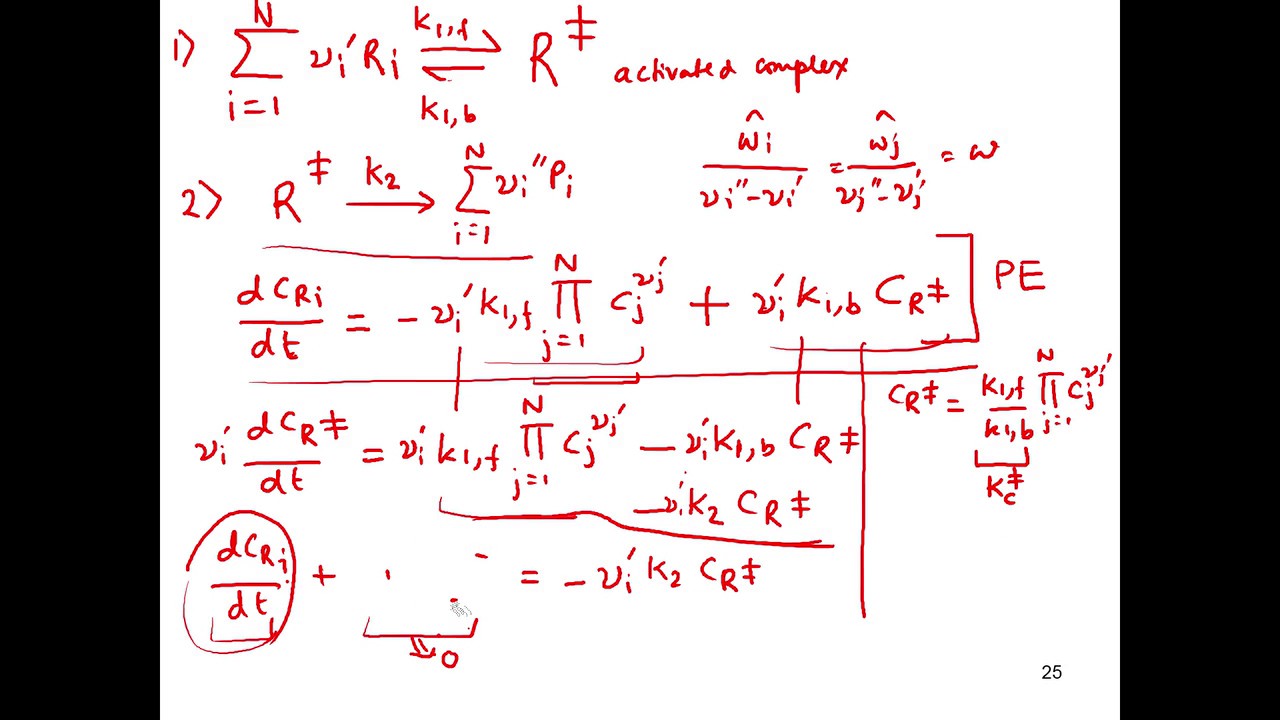 1) \sum_{i=1}^{N} ν_i' R_i ⇌ (k_{1,f} / k_{1,b}) R^‡ activated complex
2) R^‡ \xrightarrow{k_2} \sum_{i=1}^{N} ν_i'' P_i
\frac{\hat{ω}_i}{ν_i'' - ν_i'} = \frac{\hat{ω}_j}{ν_j'' - ν_j'} = ω
\frac{dC_{R_i}}{dt} = -ν_i' k_{1,f} \prod_{j=1}^{N} C_j^{ν_j'} + ν_i' k_{1,b} C_{R^‡} ] PE
C_{R^‡} = \frac{k_{1,f}}{k_{1,b}} \prod_{j=1}^{N} C_j^{ν_j'}
K_c^‡
ν_i' \frac{dC_{R^‡}}{dt} = ν_i' k_{1,f} \prod_{j=1}^{N} C_j^{ν_j'} - ν_i' k_{1,b} C_{R^‡}
- ν_i' k_2 C_{R^‡}
\frac{dC_{R_i}}{dt} + = -ν_i' k_2 C_{R^‡}
⇓ 0
25